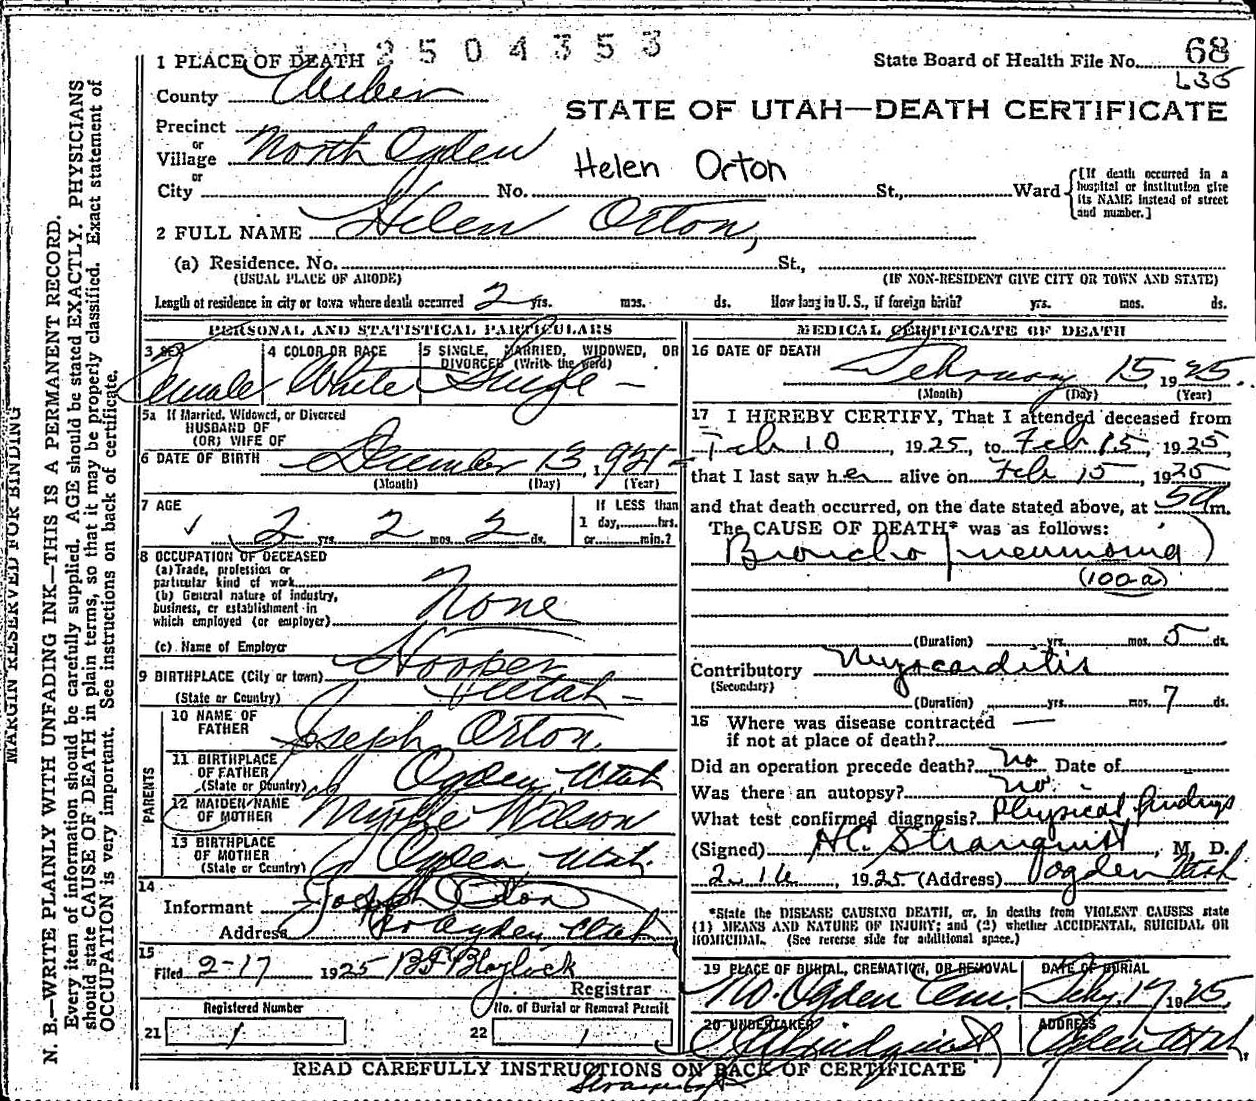 2504353
1 PLACE OF DEATH
State Board of Health File No. 68
L35
County Weber
STATE OF UTAH—DEATH CERTIFICATE
Precinct
or
Village North Ogden
or
Helen Orton
City No. St., Ward
[If death occurred in a hospital or institution give its NAME instead of street and number.]
2 FULL NAME Helen Orton,
(a) Residence. No. St.,
(USUAL PLACE OF ABODE) (IF NON-RESIDENT GIVE CITY OR TOWN AND STATE)
Length of residence in city or town where death occurred 2 yrs. mos. ds. How long in U. S., if foreign birth? yrs. mos. ds.
PERSONAL AND STATISTICAL PARTICULARS
3 SEX
Female
4 COLOR OR RACE
White
5 SINGLE, MARRIED, WIDOWED, OR
DIVORCED (Write the word)
Single —
5a If Married, Widowed, or Divorced
HUSBAND OF
(OR) WIFE OF
6 DATE OF BIRTH December 13, 192
(Month) (Day) (Year)
7 AGE
2 yrs. 2 mos. 2 ds.
If LESS than
1 day, hrs.
or min.?
8 OCCUPATION OF DECEASED
(a) Trade, profession or
particular kind of work
(b) General nature of industry,
business, or establishment in
which employed (or employer) None
(c) Name of Employer
9 BIRTHPLACE (City or town) Hooper
(State or Country) Utah —
PARENTS
10 NAME OF
FATHER Joseph Orton
11 BIRTHPLACE
OF FATHER
(State or Country) Ogden Utah
12 MAIDEN NAME
OF MOTHER Myrtle Wilson
13 BIRTHPLACE
OF MOTHER
(State or Country) Ogden Utah.
14
Informant Joseph Orton
Address No Ogden Utah
15
Filed 2-17 1925 BF Blaylock
Registrar
Registered Number
21 1
No. of Burial or Removal Permit
22 1
MEDICAL CERTIFICATE OF DEATH
16 DATE OF DEATH
February 15 1925
(Month) (Day) (Year)
17 I HEREBY CERTIFY, That I attended deceased from
Feb 10, 1925, to Feb 15, 1925,
that I last saw her alive on Feb 15, 1925
and that death occurred, on the date stated above, at 5 a m.
The CAUSE OF DEATH* was as follows:
Broncho pneumonia
(100-a)
(Duration) yrs. mos. 5 ds.
Contributory Myocarditis
(Secondary)
(Duration) yrs. mos. 7 ds.
18 Where was disease contracted —
if not at place of death?
Did an operation precede death? no Date of
Was there an autopsy? no
What test confirmed diagnosis? Physical findings
(Signed) HC Stranquist, M. D.
2-16, 1925 (Address) Ogden Utah
*State the DISEASE CAUSING DEATH, or, in deaths from VIOLENT CAUSES state
(1) MEANS AND NATURE OF INJURY; and (2) whether ACCIDENTAL, SUICIDAL OR
HOMICIDAL. (See reverse side for additional space.)
19 PLACE OF BURIAL, CREMATION, OR REMOVAL
No. Ogden Cem.
DATE OF BURIAL
Feby. 17 1925
20 UNDERTAKER
ADDRESS
Ogden Utah.
READ CAREFULLY INSTRUCTIONS ON BACK OF CERTIFICATE
MARGIN RESERVED FOR BINDING
N. B.—WRITE PLAINLY WITH UNFADING INK—THIS IS A PERMANENT RECORD.
Every item of information should be carefully supplied. AGE should be stated EXACTLY. PHYSICIANS
should state CAUSE OF DEATH in plain terms, so that it may be properly classified. Exact statement of
OCCUPATION is very important. See instructions on back of certificate.